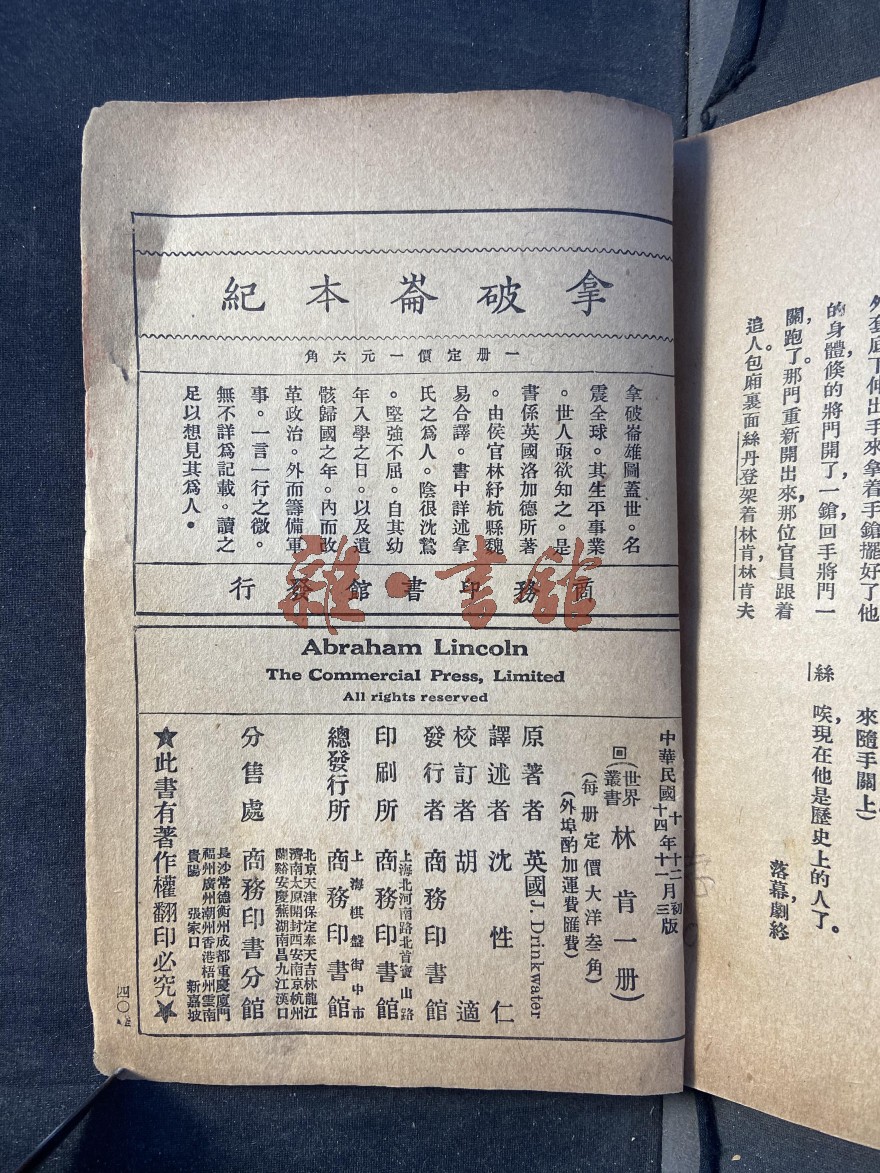 外套底下伸出手來拿着手鎗擺好了他
的身體倏的將門開了一鎗回手將門一
關，跑了。那門重新開出來，那位官員跟着
追人。包廂裏面絲丹登架着林肯，林肯夫
來隨手關上）
絲　唉，現在他是歷史上的人了。
落幕，劇終
拿破崙本紀
一册定價一元六角
拿破崙雄圖蓋世。名
震全球。其生平事業
。世人亟欲知之。是
書係英國洛加德所著
。由侯官林紓杭縣魏
易合譯。書中詳述拿
氏之爲人。陰很沈鷙
。堅強不屈。自其幼
年入學之日。以及遺
骸歸國之年。內而改
革政治。外而籌備軍
事。一言一行之微。
無不詳爲記載。讀之
足以想見其爲人。
商務印書館發行
雜·書館
Abraham Lincoln
The Commercial Press, Limited
All rights reserved
中華民國十年十二月初版
十四年十一月三版
回（世界叢書）林肯一册）
（每册定價大洋叁角）
（外埠酌加運費匯費）
原著者　英國J. Drinkwater
譯述者　沈性仁
校訂者　胡適
發行者　商務印書館
印刷所　上海北河南路北首寶山路　商務印書館
總發行所　上海棋盤街中市　商務印書館
分售處　商務印書分館
北京天津保定奉天吉林龍江
濟南太原開封西安南京杭州
蘭谿安慶蕪湖南昌九江漢口
長沙常德衡州成都重慶廈門
福州廣州潮州香港梧州雲南
貴陽　張家口　新嘉坡
★此書有著作權翻印必究★
四〇